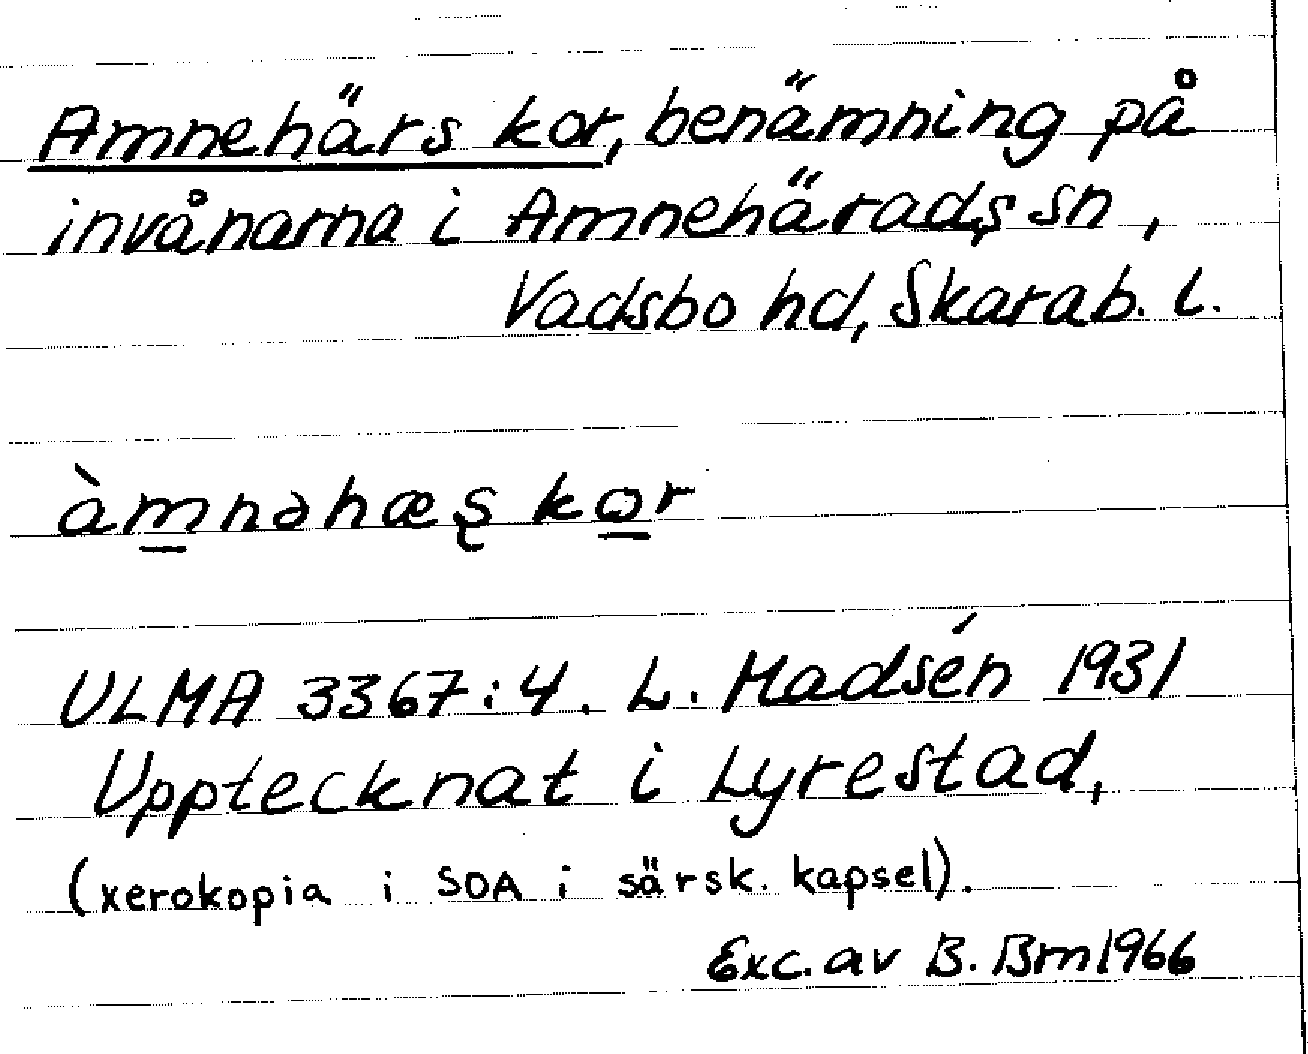 Amnehärs kor, benämning på
invånarna i Amnehärads sn,
Vadsbo hd, Skarab. l.
àm̲nəhæʂ ko̲r
ULMA 3367:4. L. Madsén 1931
Upptecknat i Lyrestad,
(xerokopia i SOA i särsk. kapsel).
Exc. av B. Brn 1966